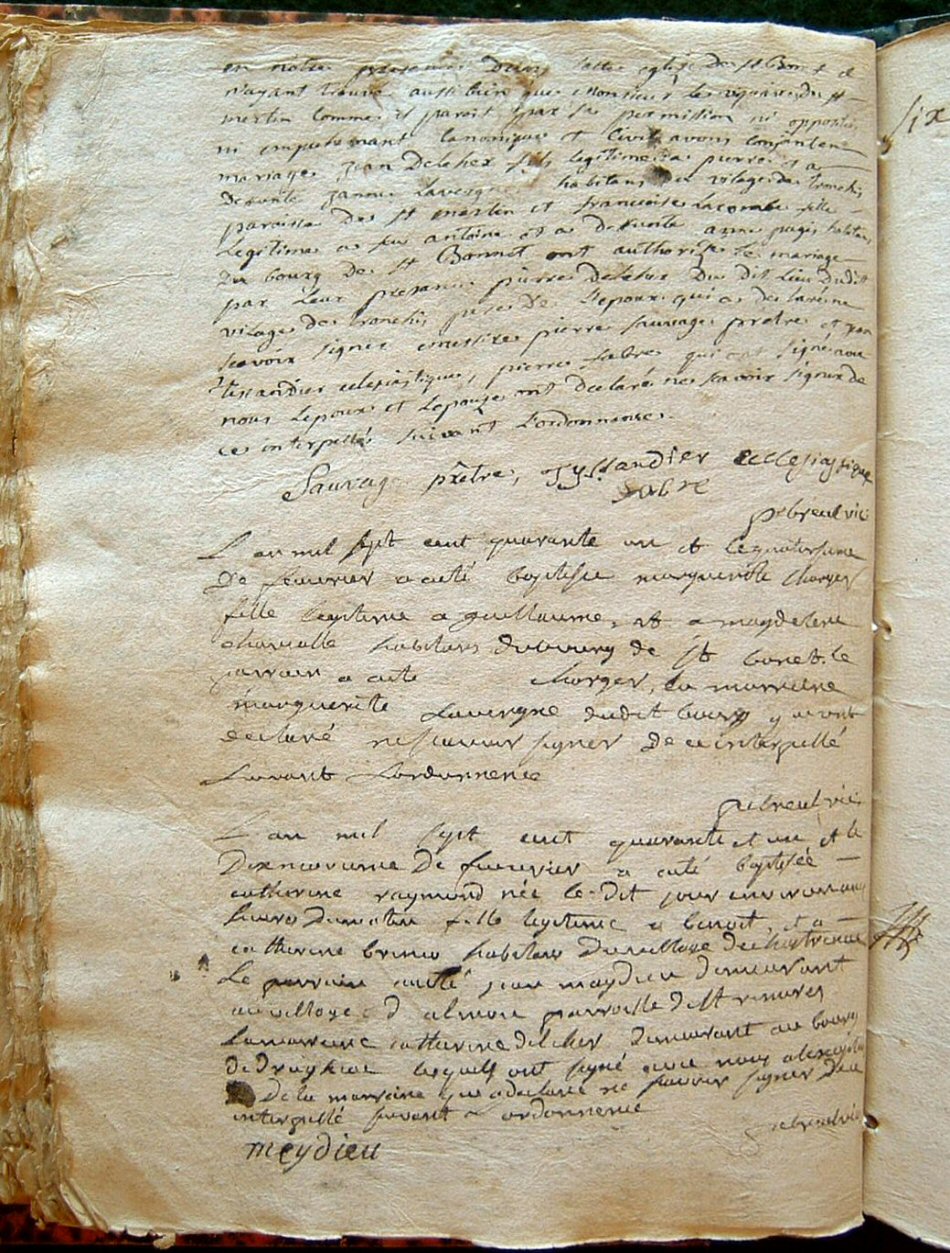 en notre presance dans cette eglise de st Bonnet et
n'ayant trouvé aussi bien que monsieur le viquaire de st
mertin comme il paroit par sa permission ni opposition
ni empechemant canonique et civil avons conjointen
mariage jean Delcher fils legitime a pierre et a
defunte janne Lavergne habitans du vilage de tronchi
paroisse de st mertin et francoise Lacombe fille
Legitime a feu antoine et a defunte anne pagés habitans
du bourg de st Bonnet ont authorisé le mariage
par leur presance pierre Delcher du dit lieu dudit
vilage de tronchi pere de l'epoux qui a declaré ne
scavoir signer messire pierre sauvage prêtre et
Tissandier eclesiastique, pierre Sabre qui ont signé avec
nous Lepoux et Lepouse ont declaré ne scavoir signer de
ce interpellés suivant L'ordonnance.
Sauvage prêtre, Tyssandier ecclesiastique
Sabre
L'an mil sept cent quarante un et le quatorsieme
De feuvrier a eté baptisée marguerite Chorger
fille legitime a guillaume, et a magdelene
habitans du bourg de st bonet. le
parrain a eté Chorger, la marraine
marguerite Lavergne dudit bourg qui ont
declaré ne scavoir signer De ce interpellé
suivant Lordonnence
L'an mil sept cent quarante et un et le
Dixneuvieme De feuvrier a eté baptisée
catherine raymond née le dit jour environ
heures du matin fille legitime a benoit, et a
catherine habitans du village de
Le parrain a eté jean maydieu demeurant
au village d parroisse de St
La marraine catherine delcher demeurant au bourg
de lesquels ont signé avec nous a l'exception
De la marraine qui a declaré ne scavoir signer De ce
interpellé suivant l'ordonnence
meydieu
six